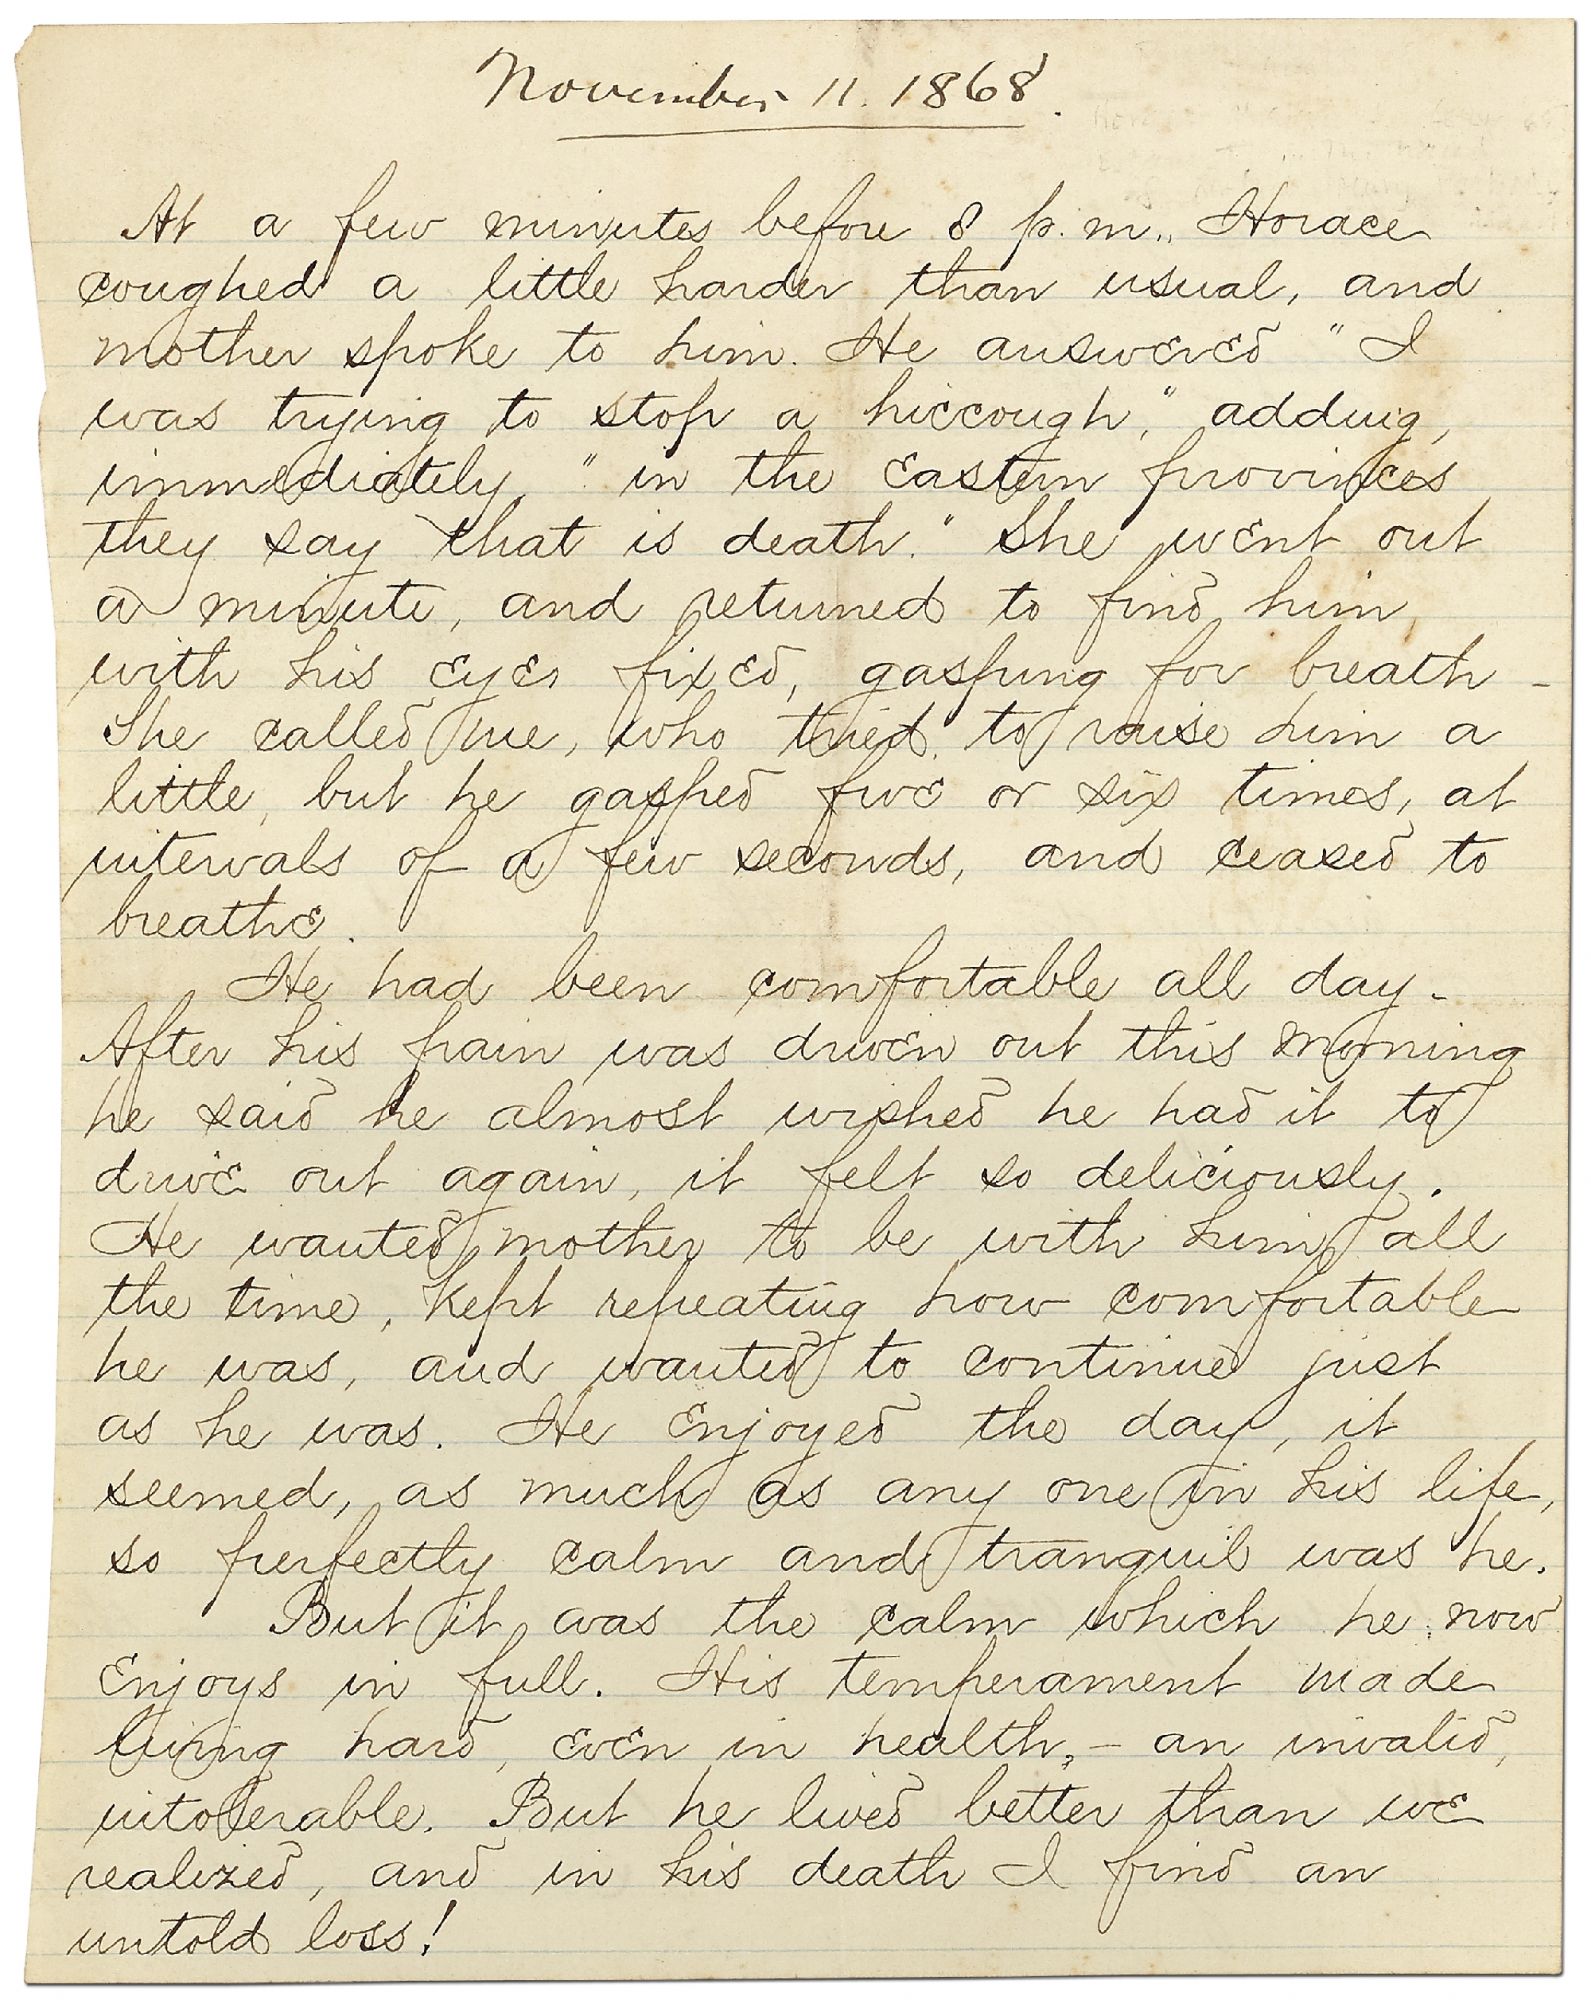 November 11. 1868.
At a few minutes before 8 p.m., Horace
coughed a little harder than usual, and
mother spoke to him. He answered "I
was trying to stop a hiccough," adding,
immediately "in the Eastern provinces
they say that is death." She went out
a minute, and returned to find him,
with his eyes fixed, gasping for breath -
She called me, who tried to raise him a
little, but he gasped five or six times, at
intervals of a few seconds, and ceased to
breathe.
He had been comfortable all day -
After his pain was driven out this morning
he said he almost wished he had it to
drive out again, it felt so deliciously.
He wanted mother to be with him all
the time, kept repeating how comfortable
he was, and wanted to continue just
as he was. He enjoyed the day, it
seemed, as much as any one in his life,
so perfectly calm and tranquil was he.
But it was the calm which he now
Enjoys in full. His temperament made
living hard, even in health, - an invalid,
intolerable. But he lived better than we
realized, and in his death I find an
untold loss!